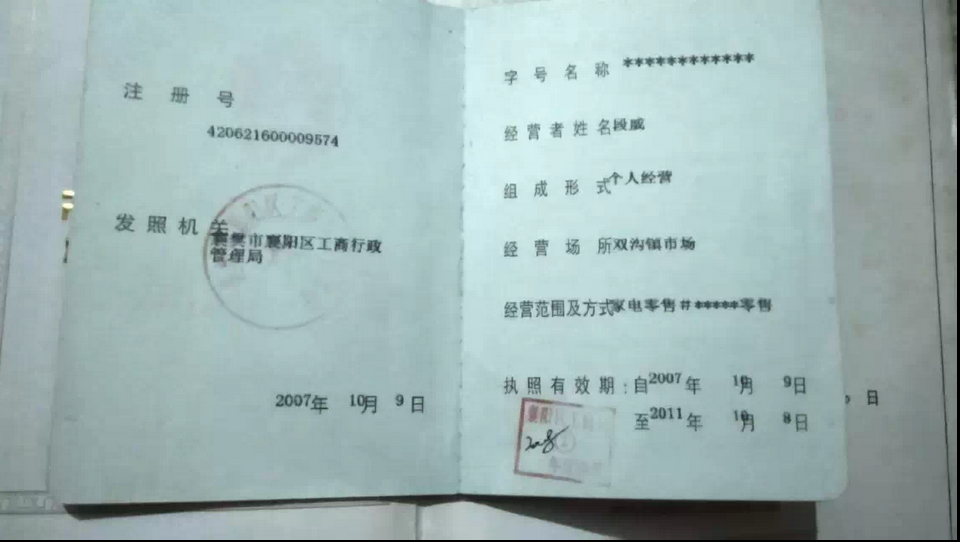 注册号
420621600009574
发照机关
襄樊市襄阳区工商行政
管理局
2007年 10月 9日
字号名称 ************
经营者姓名 段威
组成形式 个人经营
经营场所 双沟镇市场
经营范围及方式 家电零售#*****零售
执照有效期:自2007年 10月 9日
至2011年 10月 8日
日